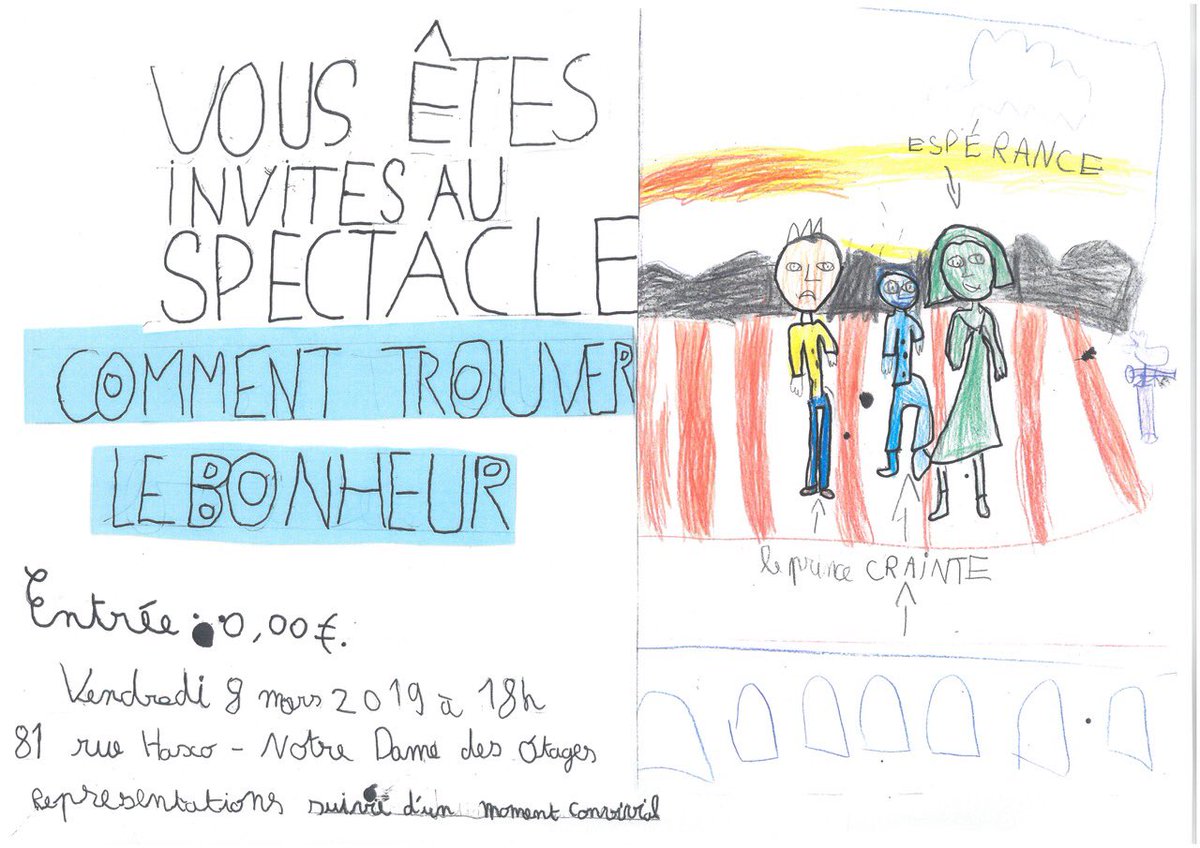 VOUS ÊTES
INVITES AU
SPECTACLE
COMMENT TROUVER
LE BONHEUR
Entrée : 0,00€.
Vendredi 8 mars 2019 à 18h
81 rue Haxo - Notre Dame des Otages
Representations suivie d'un moment convivial
ESPÉRANCE
le prince CRAINTE